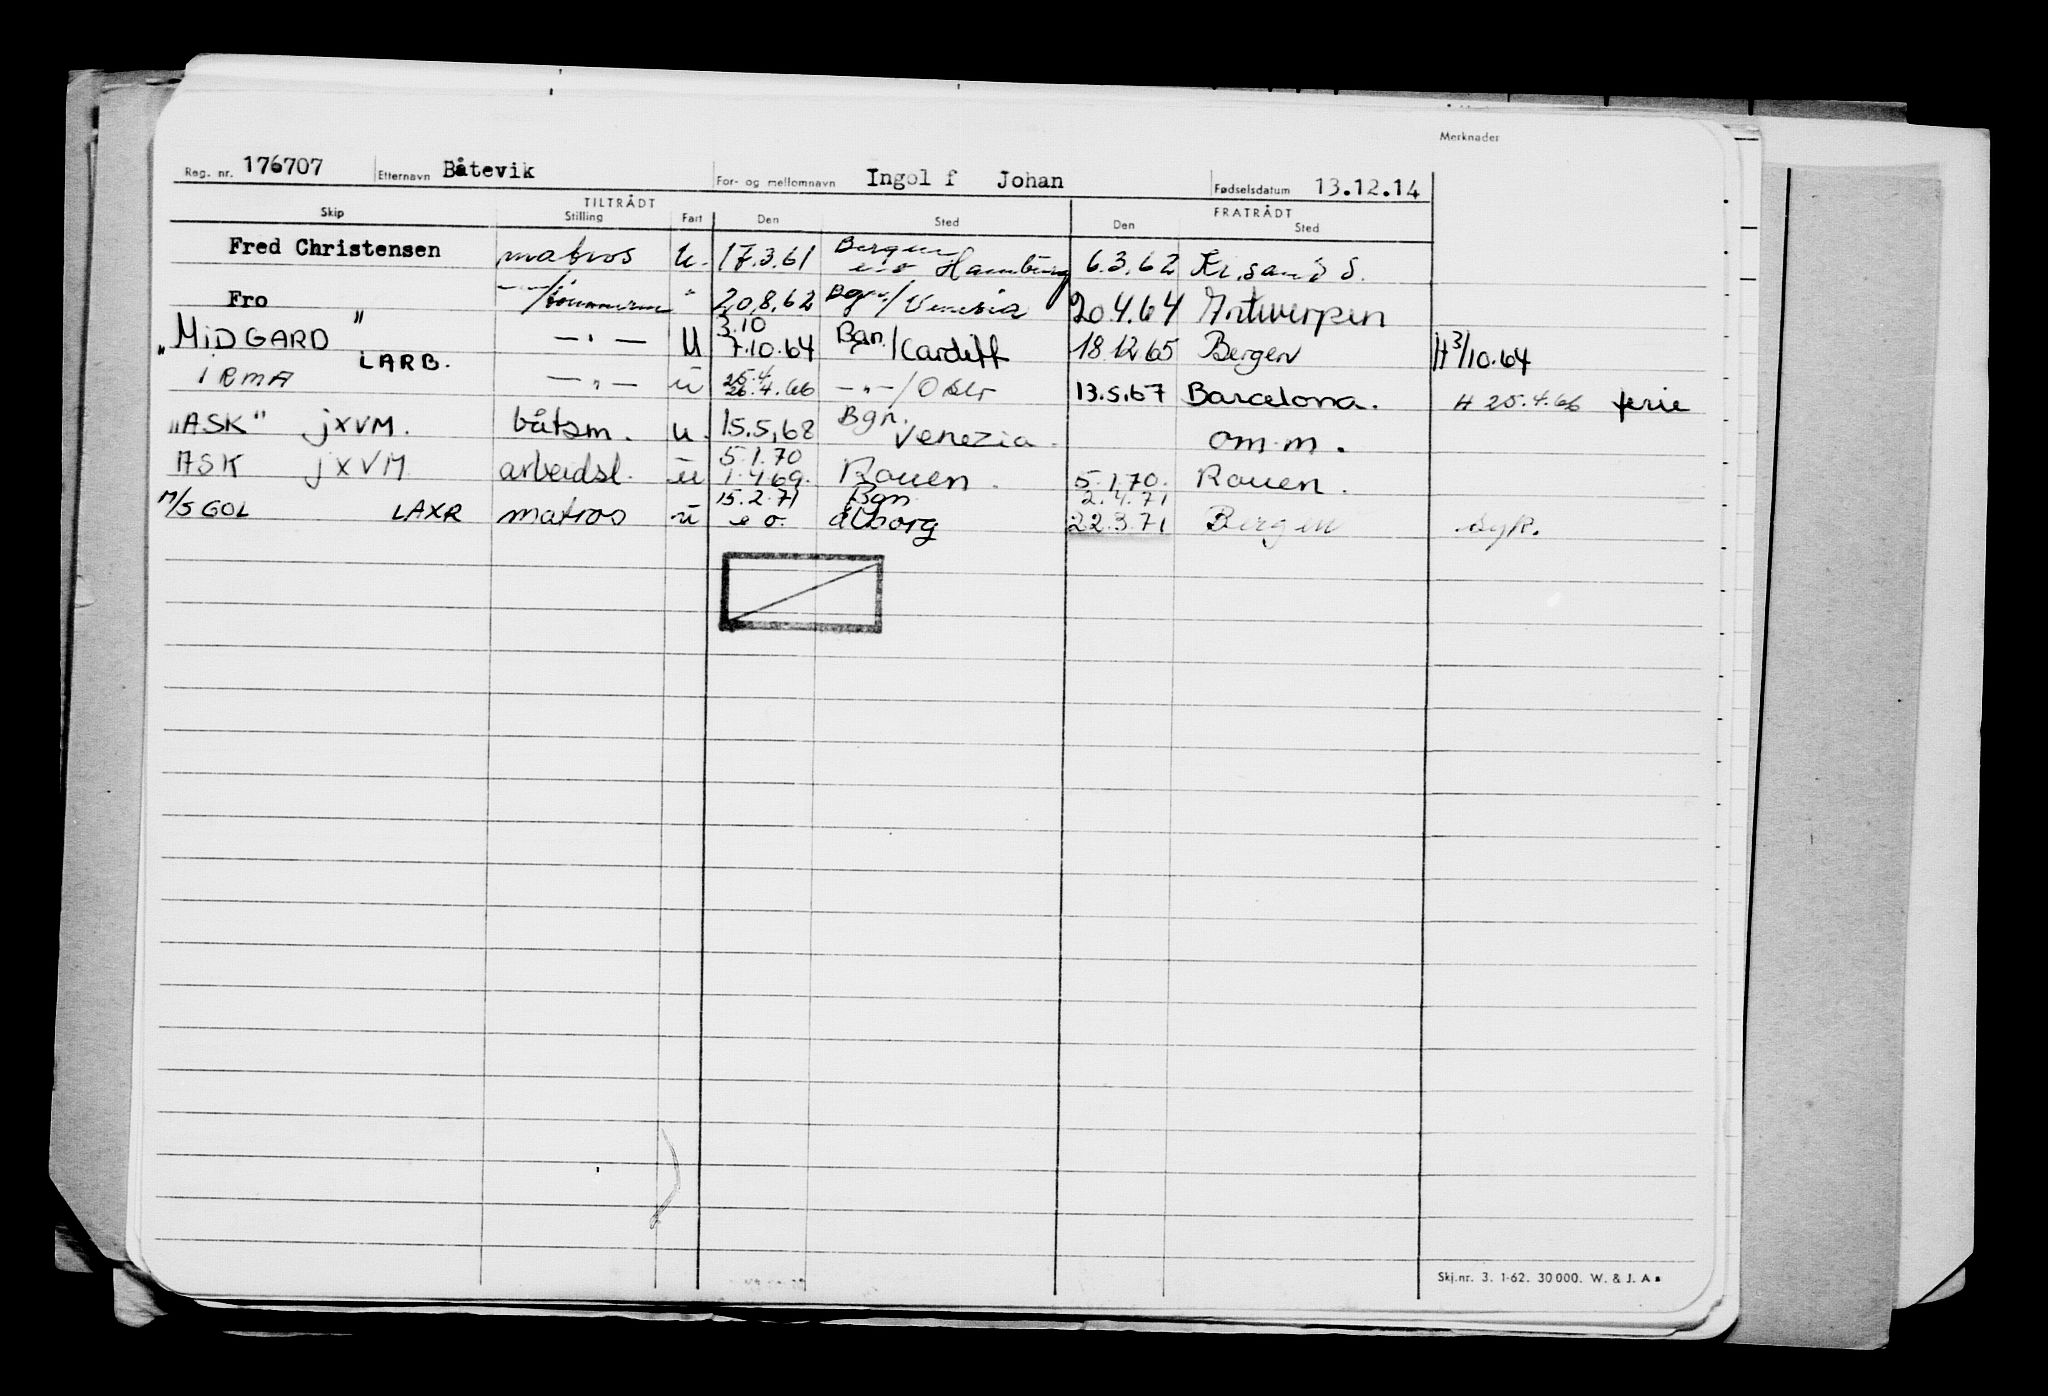 Merknader
Reg. nr. 176707 Etternavn Båtevik For- og mellomnavn Ingol f Johan Fødselsdatum 13.12.14
TILTRÅDT FRATRÅDT
Skip Stilling Fart Den Sted Den Sted
Fred Christensen matros u. 17.3.61 Bergen e.o Hamburg 6.3.62 Kr.sand S.
Fro —"—/tømmerm " 20.8.62 Bgn/Venezia 20.4.64 Antwerpen
"MiDGARD" LARB. —"— U 3.10 7.10.64 Bgn./Cardiff 18.12.65 Bergen H 3/10.64
"iRMA —"— u 25.4 26.4.66 —"—/Oslo 13.5.67 Barcelona. H 25.4.66 ferie
"ASK" jxVM. båtsm. u. 15.5.68 Bgn. Venezia. om.m.
ASK jxVM arbeidsl. u 5.1.70 1.4.69. Rouen. 5.1.70. Rouen.
M/S GOL LAXR matros u 15.2.71 e o. Bgn Ålborg 2.4.71 22.3.71 Bergen syk.
Skj.nr. 3. 1-62. 30000. W. & J. A s